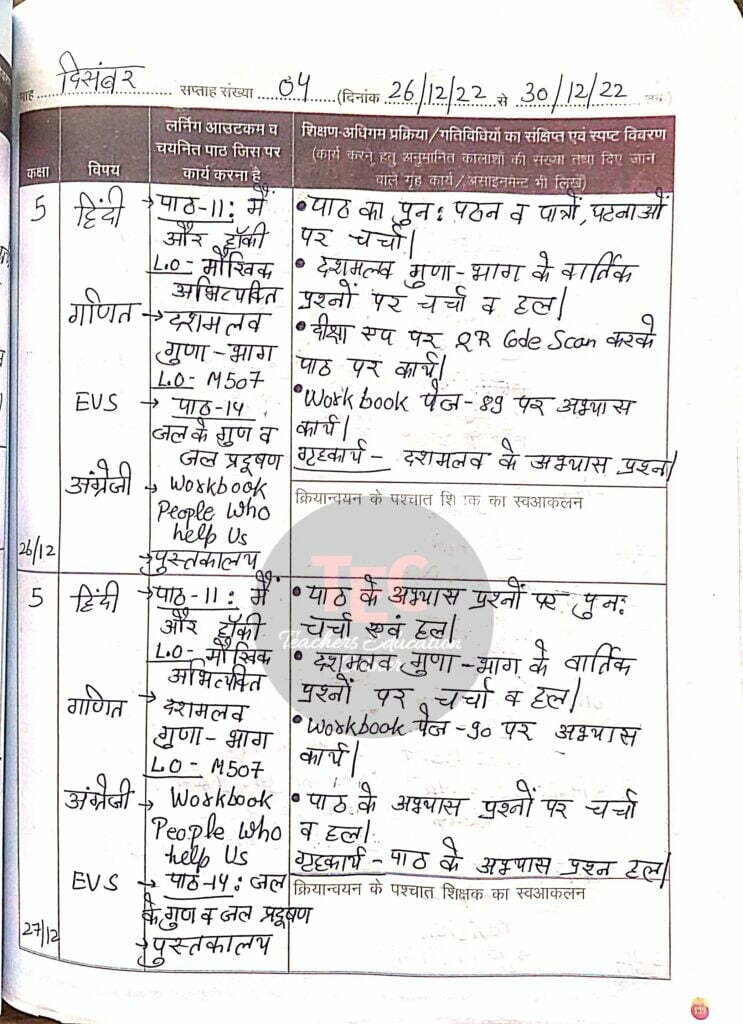 माह दिसंबर सप्ताह संख्या 04 (दिनांक 26/12/22 से 30/12/22 तक)
कक्षा
विषय
लर्निंग आउटकम व
चयनित पाठ जिस पर
कार्य करना है
शिक्षण-अधिगम प्रक्रिया/गतिविधियों का संक्षिप्त एवं स्पष्ट विवरण
(कार्य करने हेतु अनुमानित कालाशों की संख्या तथा दिए जान
वाले गृह कार्य/असाइनमेन्ट भी लिखें)
5
हिंदी
→पाठ-11: मैं
और हॉकी
L.O- मौखिक
अभिव्यक्ति
गणित
→दशमलव
गुणा-भाग
L.O- M507
EVS
→ पाठ-14
जल के गुण व
जल प्रदूषण
अंग्रेजी
→ Workbook
People Who
help Us
→पुस्तकालय
26/12
• पाठ का पुन: पठन व पात्रों, घटनाओं
पर चर्चा।
• दशमलव गुणा-भाग के वार्तिक
प्रश्नों पर चर्चा व हल।
• दीक्षा एप पर QR Code Scan करके
पाठ पर कार्य।
• Workbook पेज-89 पर अभ्यास
कार्य।
गृहकार्य- दशमलव के अभ्यास प्रश्न।
क्रियान्वयन के पश्चात शिक्षक का स्वआकलन
TEC
Teachers Education
5
हिंदी
→पाठ-11: मैं
और हॉकी
L.O- मौखिक
अभिव्यक्ति
गणित
→दशमलव
गुणा-भाग
L.O- M507
अंग्रेजी
→ Workbook
People Who
help Us
EVS
→ पाठ-14: जल
के गुण व जल प्रदूषण
→पुस्तकालय
27/12
• पाठ के अभ्यास प्रश्नों पर पुन:
चर्चा एवं हल।
• दशमलव गुणा-भाग के वार्तिक
प्रश्नों पर चर्चा व हल।
• Workbook पेज-90 पर अभ्यास
कार्य।
• पाठ के अभ्यास प्रश्नों पर चर्चा
व हल।
गृहकार्य-पाठ के अभ्यास प्रश्न हल।
क्रियान्वयन के पश्चात शिक्षक का स्वआकलन